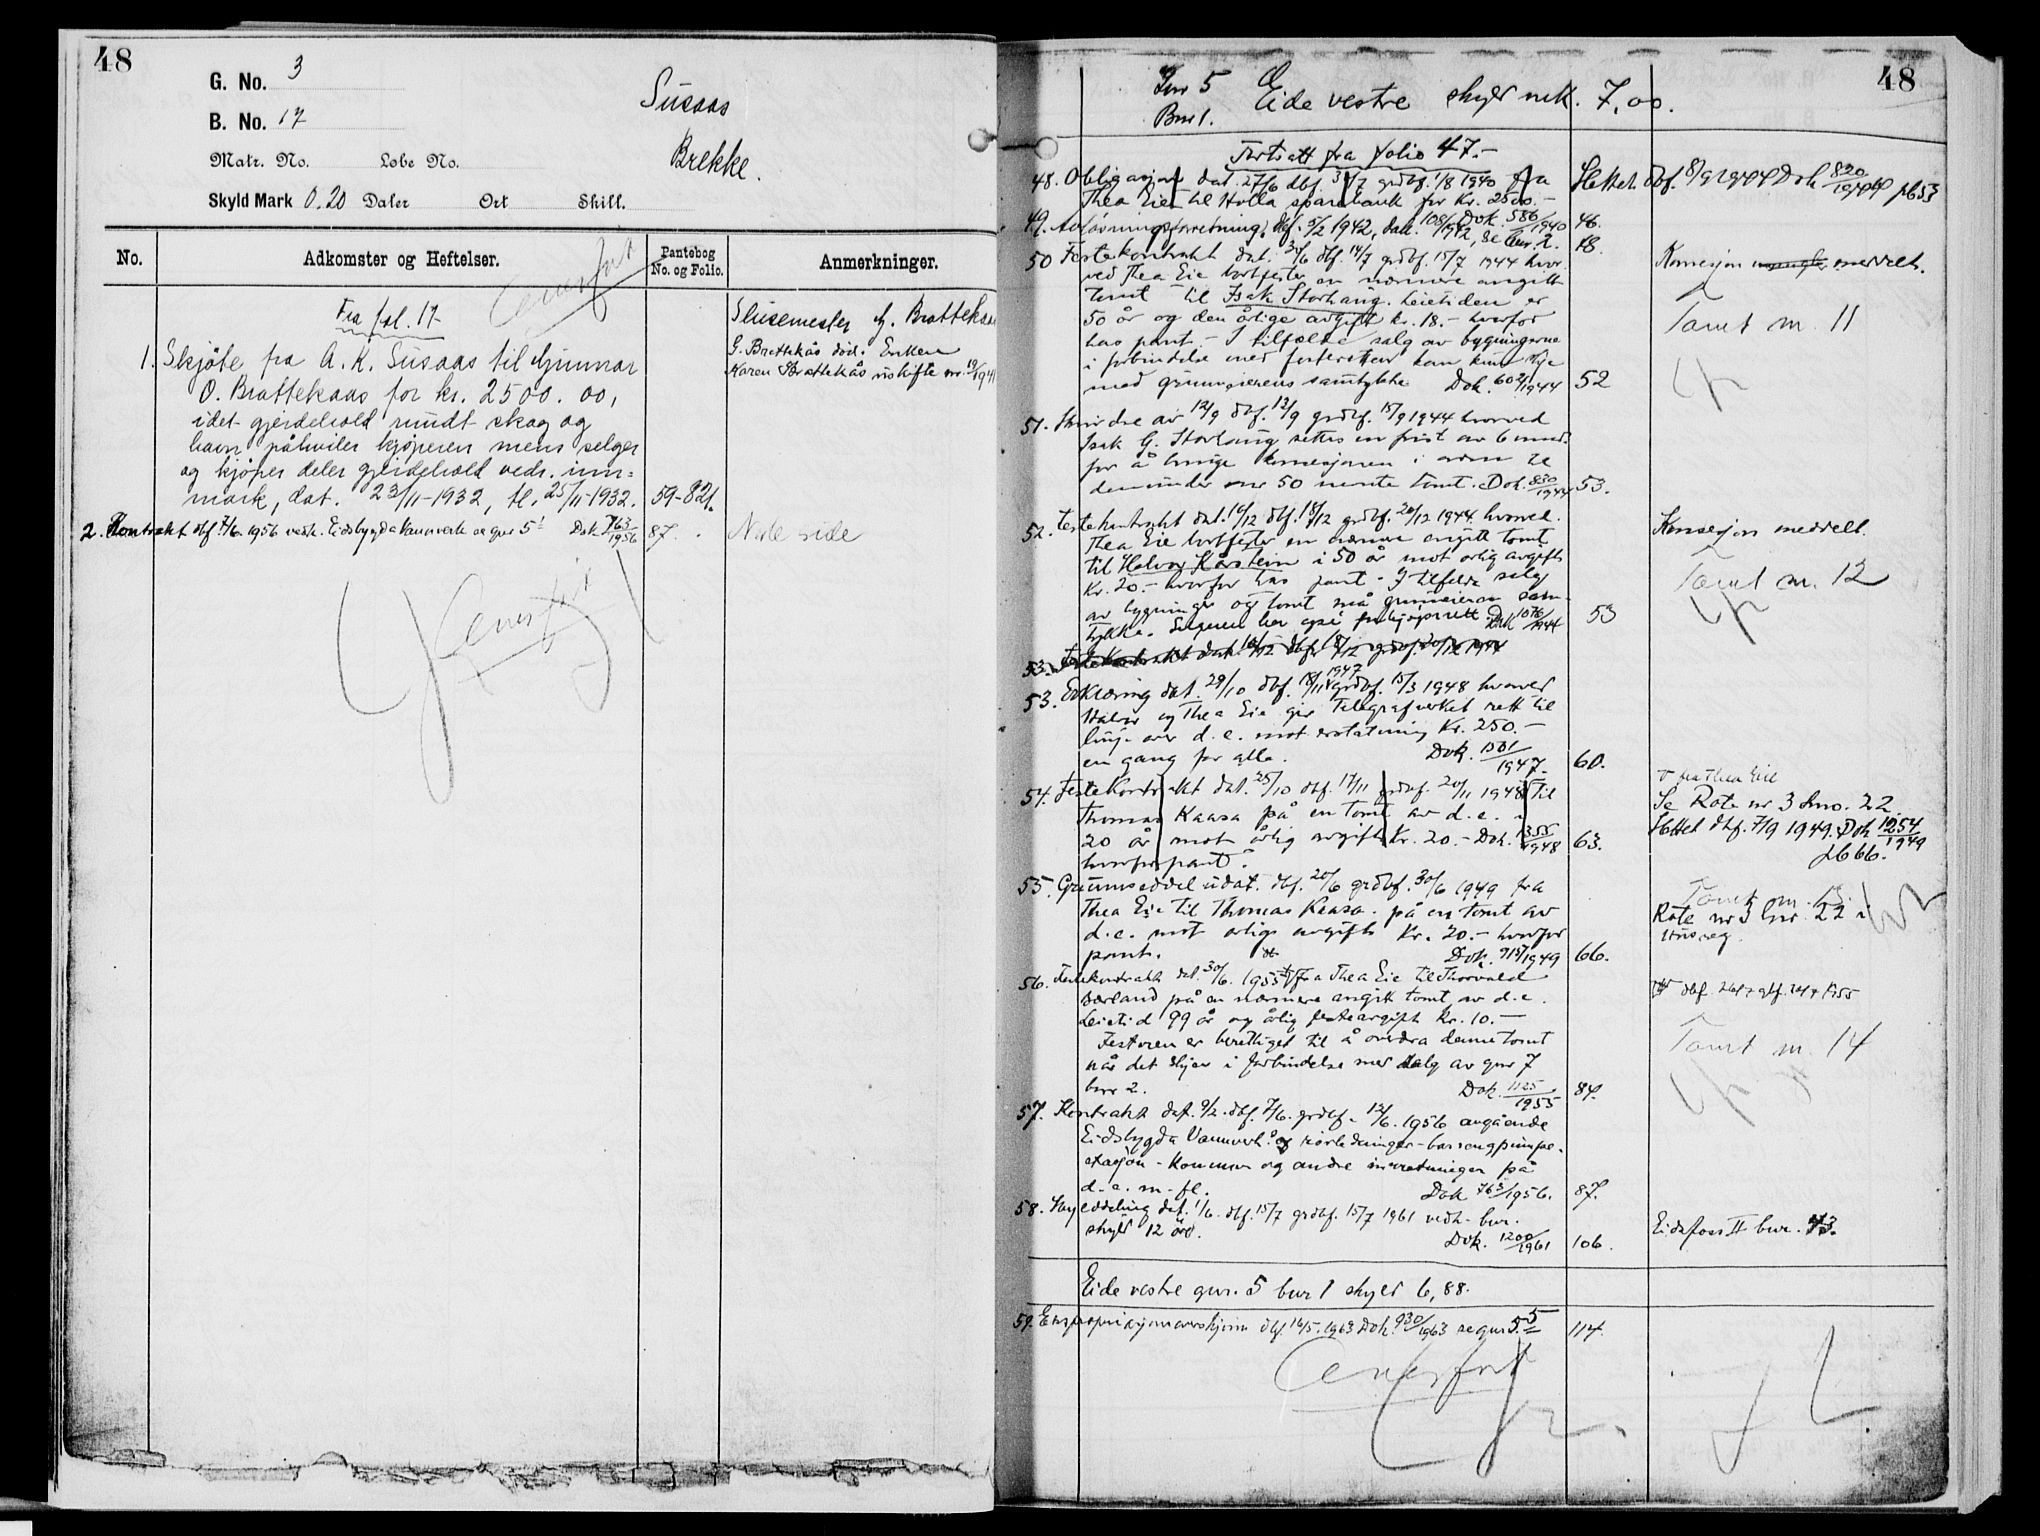 48
G. No. 3
B. No. 17
Susaas
Brekke.
Matr. No. Løbe No.
Skyld Mark 0.20 Daler Ort Skill.
No. Adkomster og Heftelser. Pantebog No. og Folio. Anmerkninger.
Fra fol. 17
1. Skjøte fra A. K. Susaas til Gunnar
O. Brattekaas for kr. 2500.00,
idet gjerdehold rundt skog og
havn påhviler kjøperen mens selger
og kjøper deler gjerdehold vedr. inn=
mark, dat. 23/11-1932, tl. 25/11-1932. 59-82.
Slusemester G. Brattekaas
G. Brattekås død. Enken
Karen Brattekås uskifte nr. 19/1941
2. Kontrakt dbf. 7/6 1956 vedr. Eidsbygda Vannverk se gnr 5 Dok 763/1956 87.
Neste side
48
Gnr 5 Eide vestre skyld mrk. 7,00.
Bnr 1.
Fortsatt fra folio 47.-
48. Obligasjon dat. 27/6 dbf. 31/7 grdbf. 1/8 1940 fra
Thea Eie til Holla sparebank for Kr. 2500.-
Dok. 586/1940 46.
Slettet dbf. 8/9 1944 Dok 820/1944 pb 53
49. Avløsningsforretning, dbf. 5/2 1942, dok. 108/1942, se bnr. 2. 48.
50 Festekontrakt dat. 30/6 dbf. 14/7 grdbf. 15/7 1944 hvor
ved Thea Eie bortfester en nærmere angitt
tomt til Isak Storhaug. Leietiden er
50 år og den årlige avgift kr. 18.- hvorfor
has pant. - I tilfelde salg av bygningerne
i forbindelse med festeretten kan kun skje
med grunneierens samtykke Dok. 602/1944 52
Konsesjon mangler meddelt.
Tomt nr. 11
51. Skrivelse av 12/9 dbf. 13/9 grdbf. 15/9 1944 hvorved
Isak G. Storhaug settes en frist av 6 mnd.
for å bringe konsesjonen i orden til
den under nr 50 nevnte tomt. Dok. 830/1944 53.
52. Festekontrakt dat. 16/12 dbf. 18/12 grdbf. 20/12 1944. hvorved
Thea Eie bortfester en nærmere angitt tomt
til Halvor Kårstein i 50 år mot årlig avgift
Kr. 20.- hvorfor has pant - I tilfelde salg
av bygninger og tomt må grunneieren sam-
tykke. Selgeren har også forkjøpsrett. Dok 1076/1944 53
Konsesjon meddelt.
Tomt nr. 12
53. Festekontrakt dat. 16/12 dbf. 18/12 grdbf. 20/12 1944
53. Erklæring dat. 29/10 dbf. 18/11 1947 grdbf. 15/3 1948 hvorved
Halvor og Thea Eie gir Telegrafverket rett til
linje over d.e. mot erstatning Kr. 250.-
en gang for alle. Dok. 1501/1947. 60.
54. Festekontrakt dat. 25/10 dbf. 17/11 grdbf. 20/11 1948 til
Thomas Kaasa på en tomt av d.e. i
20 år mot årlig avgift Kr. 20.- Dok. 1355/1948 63.
hvorfor pant.
fra Thea Eie
Se Rote nr 3 Lnr. 22
Slettet dbf. 7/9 1949. Dok 1254/1949
pb 66.
55. Grunnseddel udat. dbf. 20/6 grdbf. 30/6 1949 fra
Thea Eie til Thomas Kaasa. på en tomt av
d.e. mot årlig avgift Kr. 20.- hvorfor
pant. Dok. 919/1949 66.
Tomt nr. 13.
Rote nr 3 Lnr. 22 i
Husreg.
56. Festekontrakt dat. 30/6. 1955 fra Thea Eie til Thorvald
Særland på en nærmere angitt tomt av d.e.
Leietid 99 år og årlig festeavgift kr. 10.-
Festeren er berettiget til å overdra denne tomt
når det skjer i forbindelse med salg av gnr 7
bnr 2. Dok. 1125/1955 84.
dbf. 26/7 gbf. 26/7 1955
Tomt nr. 14
57. Kontrakt dat. 9/2. dbf. 7/6. grdbf. 12/6. 1956 angående
Eidsbygda Vannverk og rørledninger - basseng pumpe-
stasjon - kummer og andre innretninger på
d.e. m. fl. Dok 763/1956. 87.
58. Skylddeling dat. 1/6. dbf. 15/7 grdbf. 15/7 1961 vedk. bnr.
skyld 12 øre. Dok. 1200/1961 106.
Eidsfoss II bnr. 43.
Eide vestre gnr. 5 bnr 1 skyld 6,88.
59. Ekspropriasjonsoverskjønn dbf. 16/5. 1963 Dok. 930/1963 se gnr 5. 5 114.